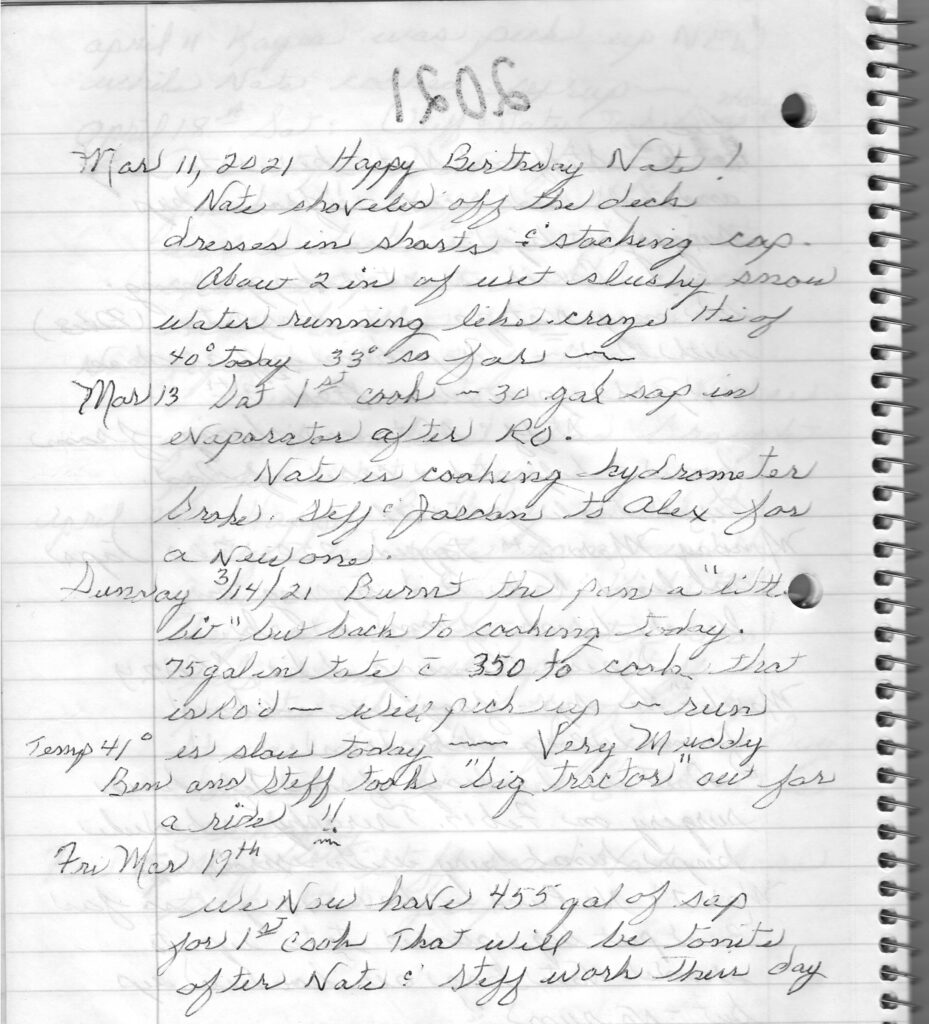 2021
Mar 11, 2021 Happy Birthday Nate!
Nate shoveled off the deck
dresses in shorts & stocking cap.
About 2 in of wet slushy snow
water running like craze Hi of
40° today 33° so far —
Mar 13 Sat 1st cook – 30 gal sap in
evaporator after RO.
Nate is cooking - hydrometer
broke. Steff & Jordan to Alex for
a New one.
Sunday 3/14/21 Burnt the pan a "littl
bit" but back to cooking today.
75 gal in tote c̄ 350 to cook that
is Ro'd — will pick up – run
Temp 41° is slow today — Very Muddy
Ben and Steff took "big tractor" out for
a ride !!
Fri Mar 19th
we Now have 455 gal of sap
for 1st cook That will be tonite
after Nate & Steff work Their day